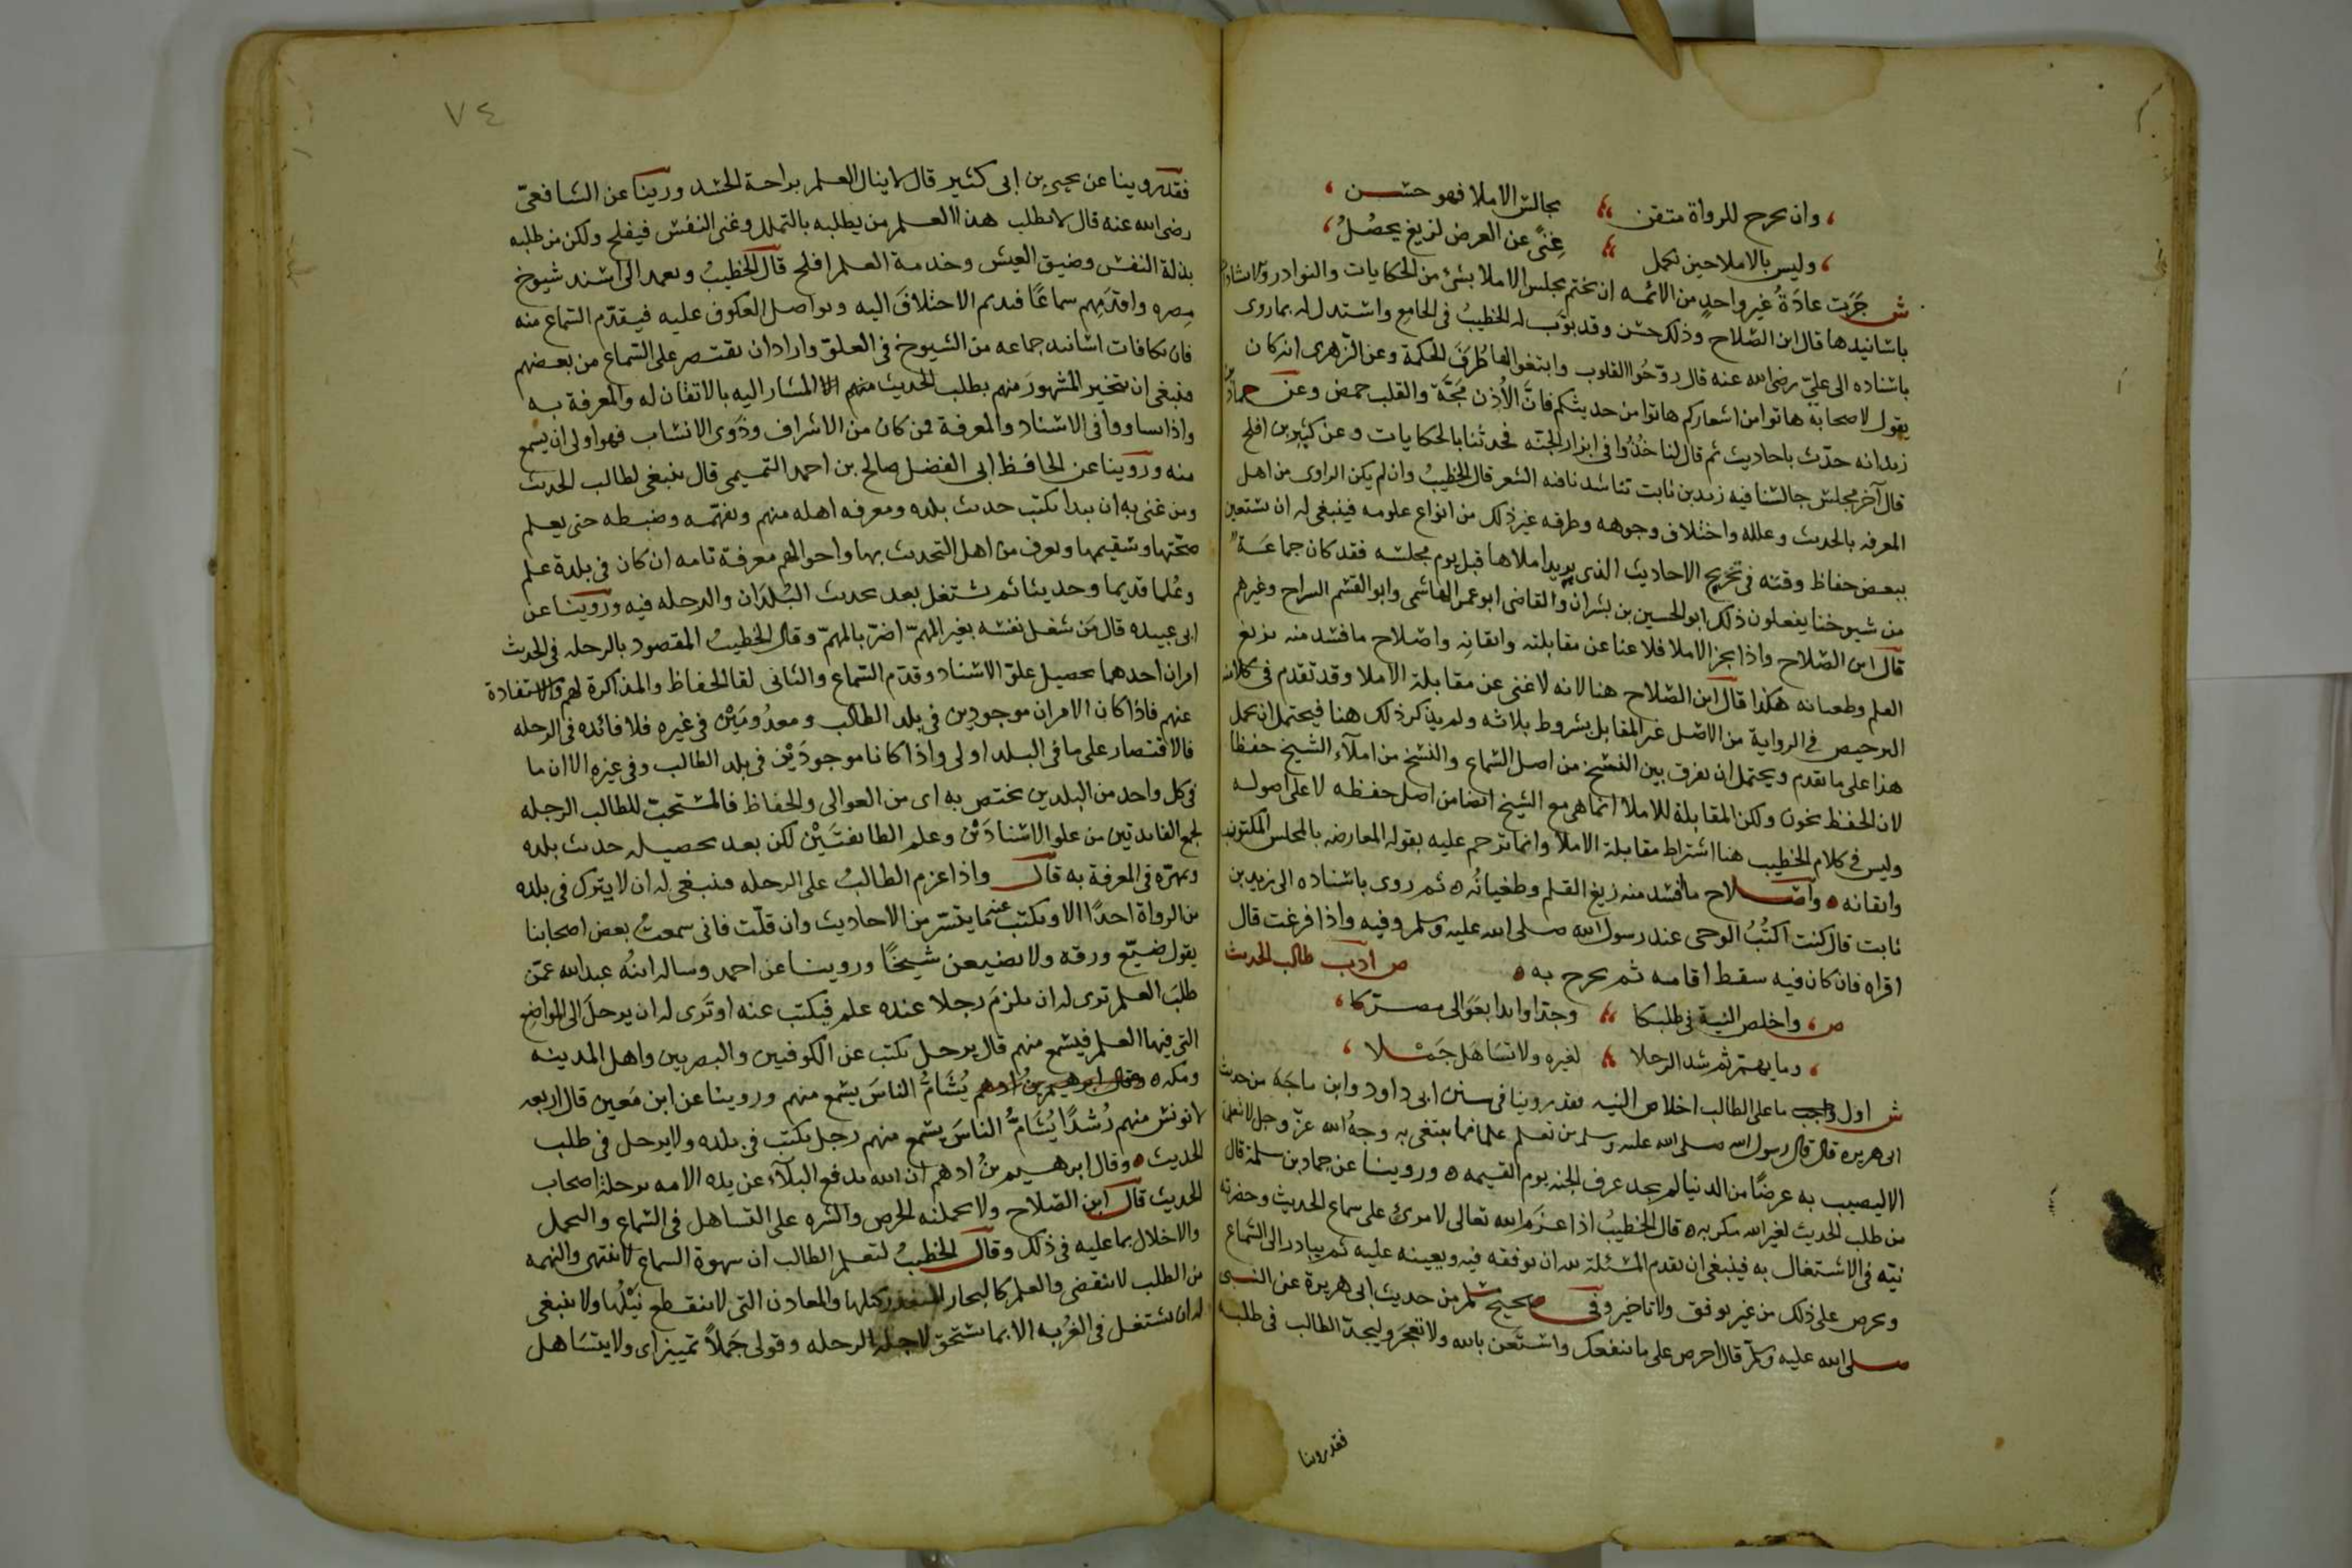 وان يخرج للرواة متقن مجالس الاملا فهو حسن
وليس بالاملا حين تكمل غنًى عن العرض لزيغ يحصُلُ
ش جَرَت عادَةُ غير واحدٍ من الائمه ان يختم مجلس الاملا بشئ من الحكايات والنوادر والانشادات
باسانيدها قال ابن الصّلاح وذلك حسن وقد بوّب له الخطيبُ في الجامع واستدل له بما روى
باسناده الى عليّ رضي الله عنه قال روّحُوا القلوب وابتغوا لها طُرَفَ الحكمة وعن الزهرى انه كان
يقول لاصحابه هاتوا من اشعاركم هاتوا من حديثكم فانّ الأُذن مَجَّة والقلب حمض وعن حماد بن
زيد انه حدّث باحاديث ثم قال لنا خُذُوا في ابزار الجنّه فحدثنا بالحكايات وعن كثير بن افلح
قال آخر مجلس جالسنا فيه زيد بن ثابت تناشدنا فيه الشعر قال الخطيبُ وان لم يكن الراوى من اهل
المعرفه بالحديث وعلله واختلاف وجوهه وطرقه غير ذلك من انواع علومه فينبغي له ان يستعين
ببعض حفاظ وقته في تخريج الاحاديث الذي يريد املاها قبل يوم مجلسه فقد كان جماعَة
من شيوخنا يفعلون ذلك ابو الحسين بن بشران والقاضي ابو عمر الهاشمي وابو القسم السراج وغيرهم
قال ابن الصّلاح واذا نجز الاملا فلا غنا عن مقابلته واتقانِه واصلاح ما فسد منه بزيغ
القلم وطغيانه هكذا قال ابن الصّلاح هنا لانه لا غنى عن مقابلة الاملا وقد تقدم في كلامه
الترخيص في الرواية من الاصل غير المقابل بشروط ثلاثه ولم يذكر ذلك هنا فيحتمل ان يحمل
هذا على ما تقدم ويحتمل ان يفرق بين النسخ من اصل السّماع والنسخ من املآء الشيخ حفظا
لان الحفظ يخون ولكن المقابلة للاملا انما هي مع الشيخ ايضا من اصل حفظه لا على اصوله
وليس في كلام الخطيب هنا اشتراط مقابلة الاملا وانما ترجم عليه بقوله المعارضه بالمجلس المكتوب
واتقانه واصلاح ما افسد منه زيغ القلم وطغيانُه ثم روى باسناده الى زيد بن
ثابت قال كنت اكتُبُ الوحى عند رسول الله صلى الله عليه وسلم وفيه واذا فرغت قال
اقراه فان كان فيه سقط اقامه ثم يخرج به ص ادَب طالب الحديث
ص واخلص النية في طلبكا وجدّ وابدا بعَوَالى مصركا
وما يهمّ ثم شد الرحلا لغيره ولا تسَاهَل حَمْلا
ش اول واجب ما على الطالب اخلاص النيه فقد روينا في سنن ابى داود وابن ماجَهْ من حديث
ابى هريرة قال قال رسول الله صلى الله عليه وسلم من تعلم علما مما يبتغى به وجهُ الله عزّ وجل لا يتعلمه
الا ليصيب به عرضًا من الدنيا لم يجد عرف الجنه يوم القيمه وروينا عن حماد بن سلمة قال
من طلب الحديث لغير الله مكر به قال الخطيبُ اذا عزَم الله تعالى لامرئ على سماع الحديث وحضرته
نيّه في الاشتغال به فينبغى ان يقدم المسئلة لله ان يوفقه فيه ويعينه عليه ثم يبادر الى السّماع
ويحرص على ذلك من غير توقف ولا تاخير وفى صحيح مسلم من حديث ابى هريرة عن النبى
صلى الله عليه وسلم قال احرص على ما ينفعك واستَعن بالله ولا تعجز وليجدّ الطالب في طلبه
فقد روينا
٧٤
فقد روينا عن يحيى بن ابى كثير قال لا ينال العلم براحة الجسد وروينا عن الشافعيّ
رضى الله عنه قال لا يطلب هذا العلم من يطلبه بالتملل وغنى النفس فيفلح ولكن من طلبه
بذلة النفس وضيق العيش وخدمة العلم افلح قال الخطيبُ ويعمد الى اسند شيوخ
مِصره واقدَمِهم سماعًا فيديم الاختلافَ اليه ويواصل العكوف عليه فيقدّم السّماع منه
فان تكافات اسانيد جماعه من الشيوخ في العلوّ واراد ان يقتصر على السماع من بعضهم
فينبغى ان يتخير المشهورَ منهم بطلب الحديث منهم المشار اليه بالاتقان له والمعرفة به
واذا تساووا في الاسناد والمعرفة فمن كان من الاشراف وذَوى الانساب فهو اولى ان يسمع
منه وروينا عن الحافظ ابى الفضل صالح بن احمد التميمي قال ينبغى لطالب الحديث
ومن عُنى به ان يبدا بكتب حديث بلده ومعرفه اهله منهم وتفهّمه وضبطه حتى يعلم
صحّتها وسقيمها ويعرف من اهل التحديث بها واحوالهم معرفة تامه ان كان في بلدة علم
وعُلما قديما وحديثا ثم يشتغل بعد بحديث البُلدَان والرحله فيه وروينا عن
ابى عبيده قال مَن شغل نفسه بغير المهمّ اضرّ بالمهمّ وقال الخطيبُ المقصود بالرحله في الحديث
امران احدهما تحصيل علوّ الاسناد وقدَم السّماع والثانى لقا الحفاظ والمذاكرة لهم والاستفادة
عنهم فاذا كان الامران موجودين في بلد الطالب ومعدُومَيْن في غيره فلا فائده في الرحله
فالاقتصار على ما في البلد اولى واذا كانا موجودَيْن في بلد الطالب وفى غيره الا ان ما
في كل واحد من البلدين يختص به اى من العوالى والحفاظ فالمستحبّ للطالب الرحله
لجمع الفايدتين من علو الاسنادَيْن وعلم الطائفتَيْن لكن بعد تحصيله حديث بلده
وتمهّره في المعرفة به قال واذا عزم الطالبُ على الرحله فينبغى له ان لا يترك في بلده
من الرواة احدًا الا ويكتب عنه ما يتيسّر من الاحاديث وان قلّت فانى سمعتُ بعض اصحابنا
يقول ضيّع ورقه ولا تضيعن شيخًا وروينا عن احمد وساله ابنُه عبد الله عمّن
طلبَ العلم ترى له ان يلزمَ رجلا عنده علم فيكتب عنه او ترَى له ان يرحلَ الى المواضع
التى فيها العلم فيسمع منهم قال يرحل يكتب عن الكوفيين والبصريين واهل المدينه
ومكه وقال ابرهيم بن ادهم يُشَامُّ الناسَ يسمع منهم وروينا عن ابن مَعين قال اربعه
لا تونس منهم رُشدًا يُشَامُّ الناسَ يسمع منهم رجل يكتب في بلده ولا يرحل في طلب
الحديث وقال ابرهيم بنُ ادهم ان الله يدفع البلآء عن هذه الامه برحلة اصحاب
الحديث قال ابن الصّلاح ولا يحملنه الحرص والشره على التساهل في السّماع والتحمل
والاخلال بما عليه في ذلك وقال الخطيبُ ليعلم الطالب ان شهوة السماع لا تنتهى والنهمه
من الطلب لا تنقضى والعلم كالبحار المتعذر كيلها والمعادن التى لا ينقطع نَيْلُها ولا ينبغى
له ان يشتغل في الغُربه الا بما يستحق لاجله الرحله وقولى حَملاً تمييز اى ولا يتسَاهل